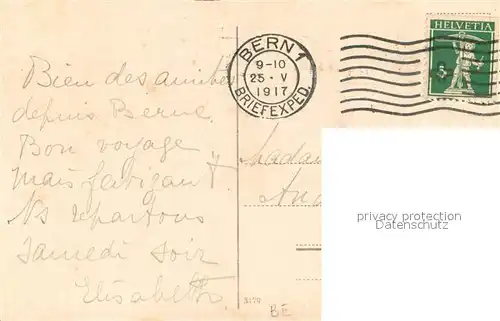 BERN 1
9-10
25 · V
1917
BRIEFEXPED.
HELVETIA
5
Bien des amitiés
depuis Berne.
Bon voyage
mais fatigant.
Ns repartons
Samedi soir
Elisabeth
Madam
And
privacy protection
Datenschutz
3170
BE